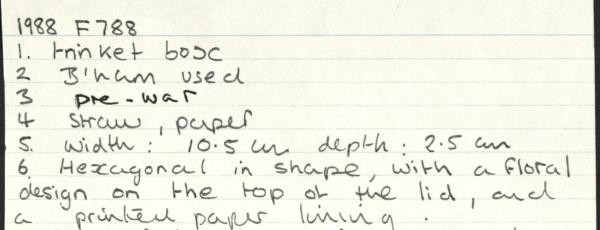 1988 F788
1. trinket box
2 B'ham used
3 pre-war
4 straw, paper
5. width: 10.5 cm depth: 2.5 cm
6. Hexagonal in shape, with a floral
design on the top of the lid, and
a printed paper lining.